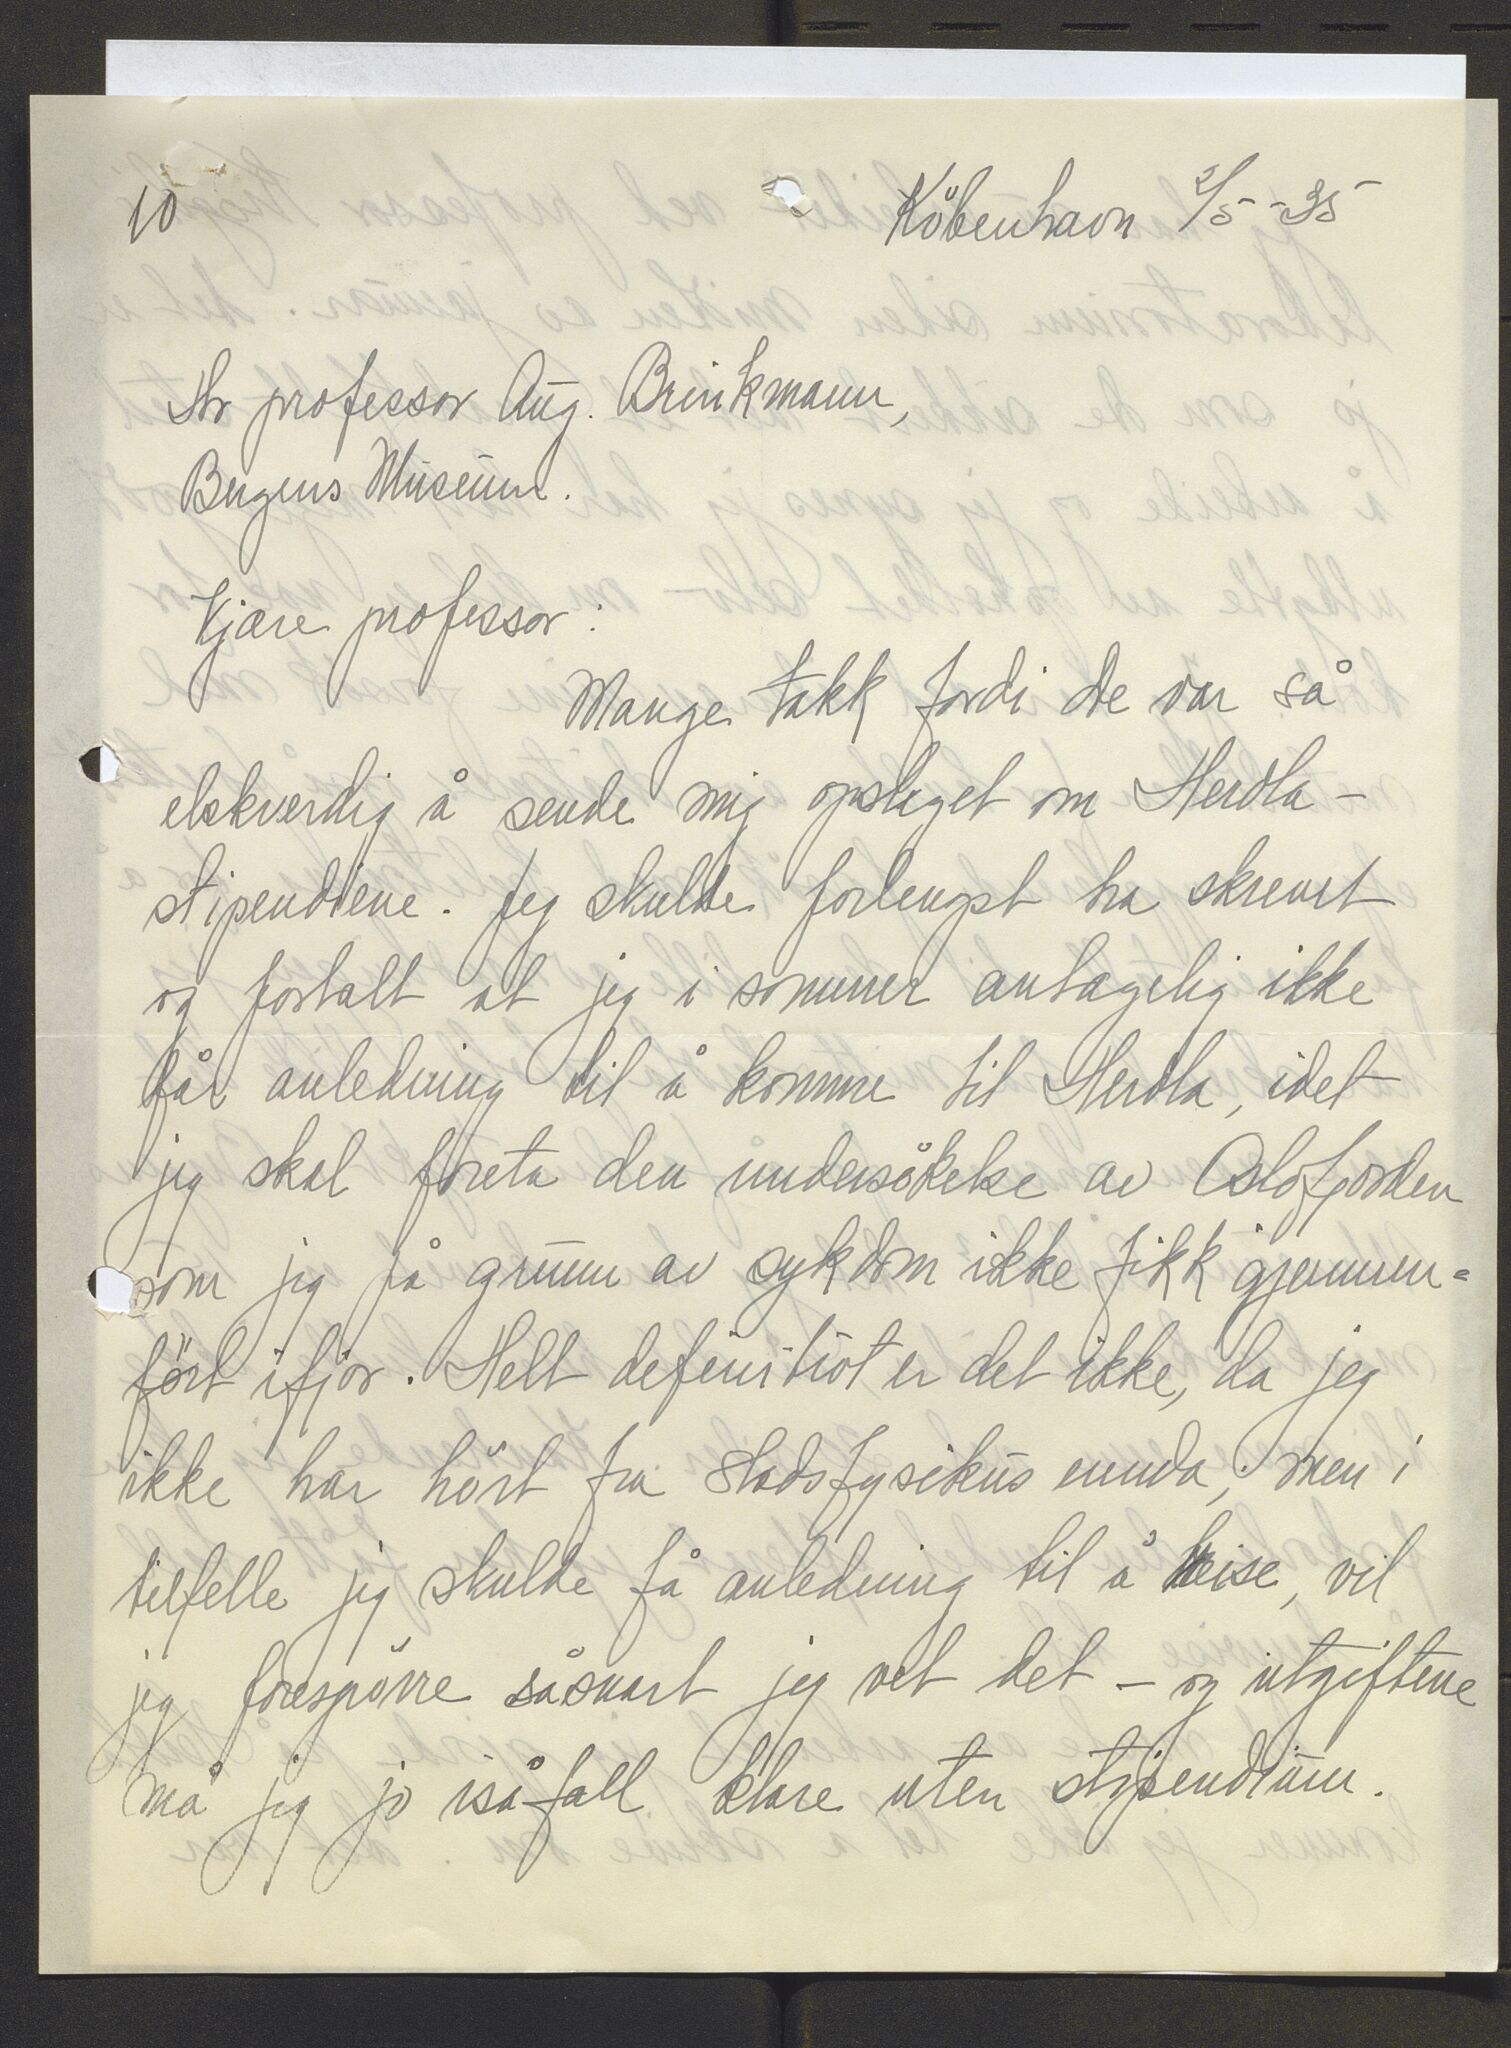 10
København 2/5 -35
Hr professor Aug. Brinkmann,
Bergens Museum.
Kjære professor:
Mange takk fordi De var så
elskverdig å sende mig opslaget om Herdla-
stipendiene. Jeg skulde forlengst ha skrevet
og fortalt at jeg i sommer antagelig ikke
får anledning til å komme til Herdla, idet
jeg skal foreta den undersökelse av Oslofjorden
som jeg på grunn av sykdom ikke fikk gjennem=
fört ifjor. Helt definitivt er det ikke, da jeg
ikke har hört fra Stadsfysikus ennda; men i
tilfelle jeg skulde få anledning til å reise, vil
jeg forespörre såsnart jeg vet det - og utgiftene
må jeg jo isåfall klare uten stipendium.